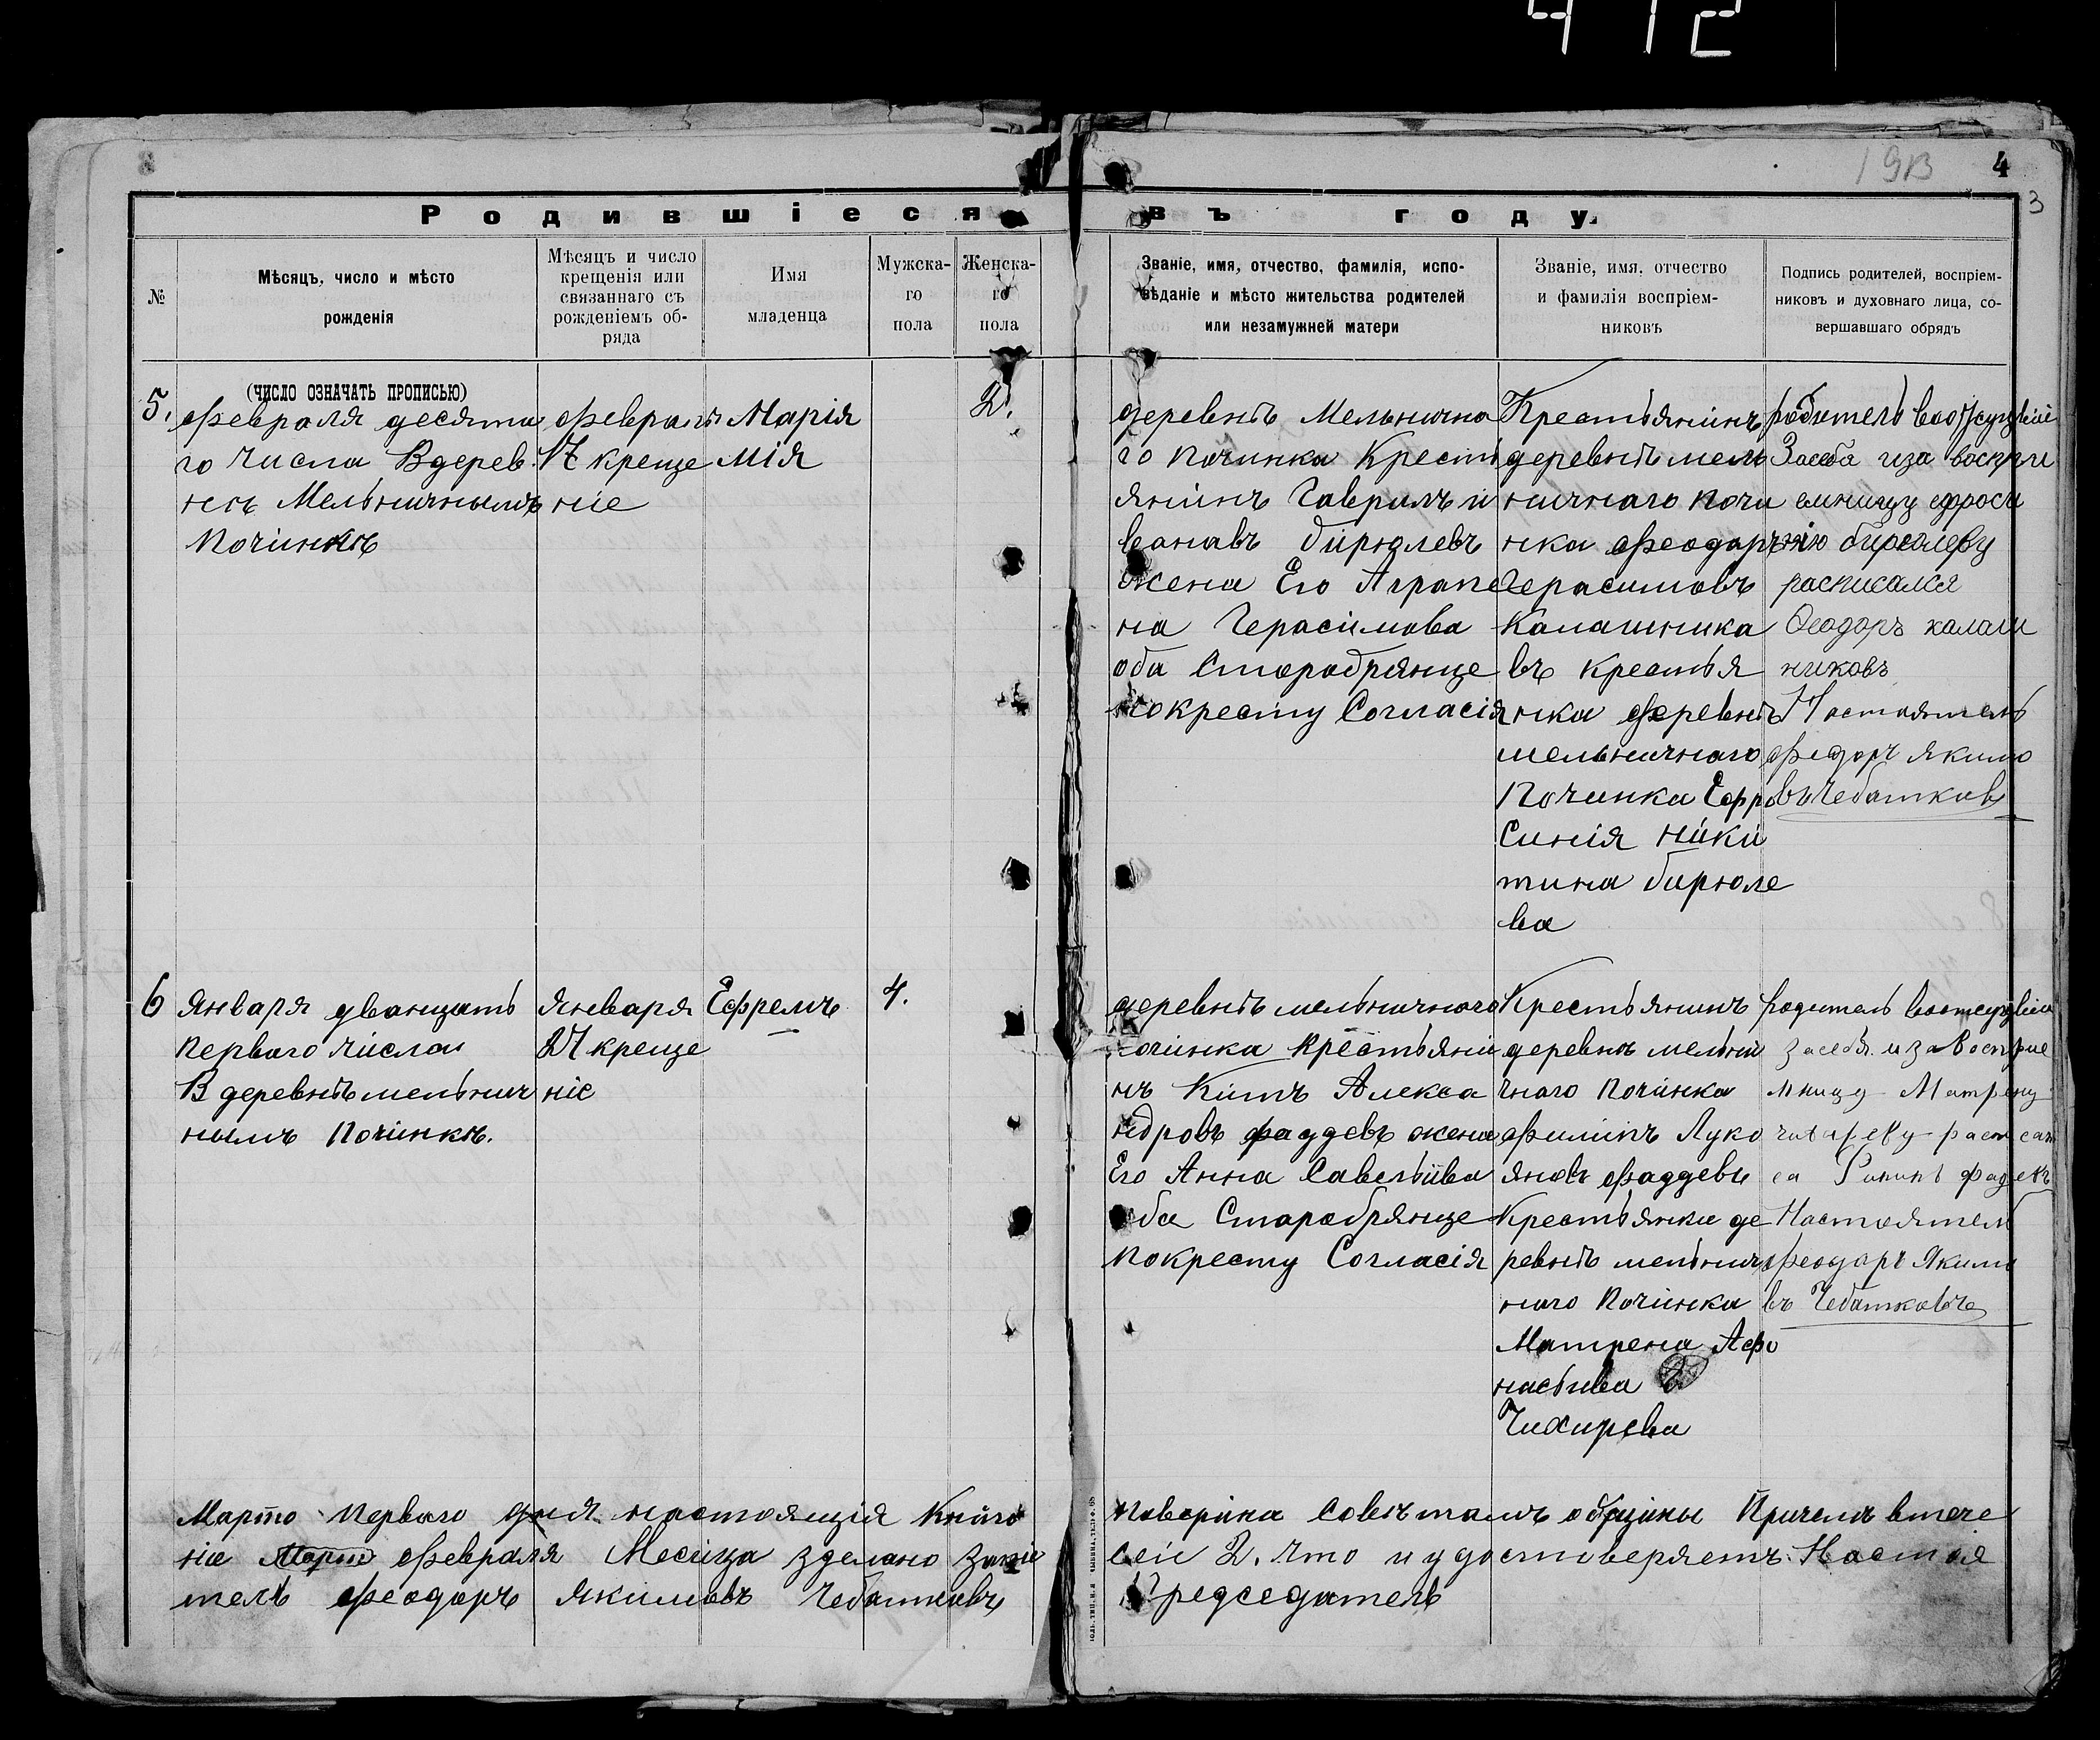 412
193
4
3
Родившіеся въ году.
№
Мѣсяцъ, число и мѣсто
рожденія
Мѣсяцъ и число
крещенія или
связаннаго съ
рожденіемъ об-
ряда
Имя
младенца
Мужска-
го
пола
Женска-
го
пола
Званіе, имя, отчество, фамилія, испо-
вѣданіе и мѣсто жительства родителей
или незамужней матери
Званіе, имя, отчество
и фамилія воспріем-
никовъ
Подпись родителей, воспріем-
никовъ и духовнаго лица, со-
вершавшаго обрядъ
(ЧИСЛО ОЗНАЧАТЬ ПРОПИСЬЮ)
5.
февраля десята
го числа Вдерев
нѣ Мельничнымъ
Починкѣ
февраля
17 креще
ніе
Марія
мія
2.
деревнѣ Мельнична
го Починка Кресть
янинъ Гаврилъ и
вановъ бирюлевъ
жена Его Аграпе
на Герасимова
оба Старобрянце
покресту Согласія
Крестьянинъ
деревнѣ мель
ничнаго почи
нка феодоръ
Герасимовъ
Калашника
въ крестья
нка деревнѣ
мельничнаго
Починка Ефро
синія ники
тина бирюле
ва
родитель
Засеба иза воспри
емницу ефроси
нію бирюлеву
расписался
Ѳеодоръ калаш
никовъ
Настоятель
федоръ якимо
въ Чебатковъ
6
Января дванцать
перваго числа
В деревнѣ мельнич
нымъ Починкѣ.
Января
27 креще
ніе
Ефремъ
4.
деревнѣ мельничнаго
Починка крестьяни
нъ Китъ Алекса
ндровъ фаддевъ жена
Его Анна Савельива
оба Старобрянце
покресту Согласія
Крестьянинъ
деревнѣ мельни
чнаго Починка
филипъ Луко
яновъ фаддевъ
Крестьянка де
ревнѣ мельнич
наго Починка
Матрена Афо
насьива
Чихирева
родитель
засебя иза Воспріе
мницу Матрену
чихиреву
са фадевъ
Настоятель
феодоръ Якимо
въ Чебатковъ
Марта перваго дня настоящія Книга
поверина Совѣтамъ общины Причемъ втече
ніе Март февраля Месяца зделано Запи
сеи 2. что и удостоверяетъ Настоя
тель феодоръ якимовъ Чебатковъ
Председатель